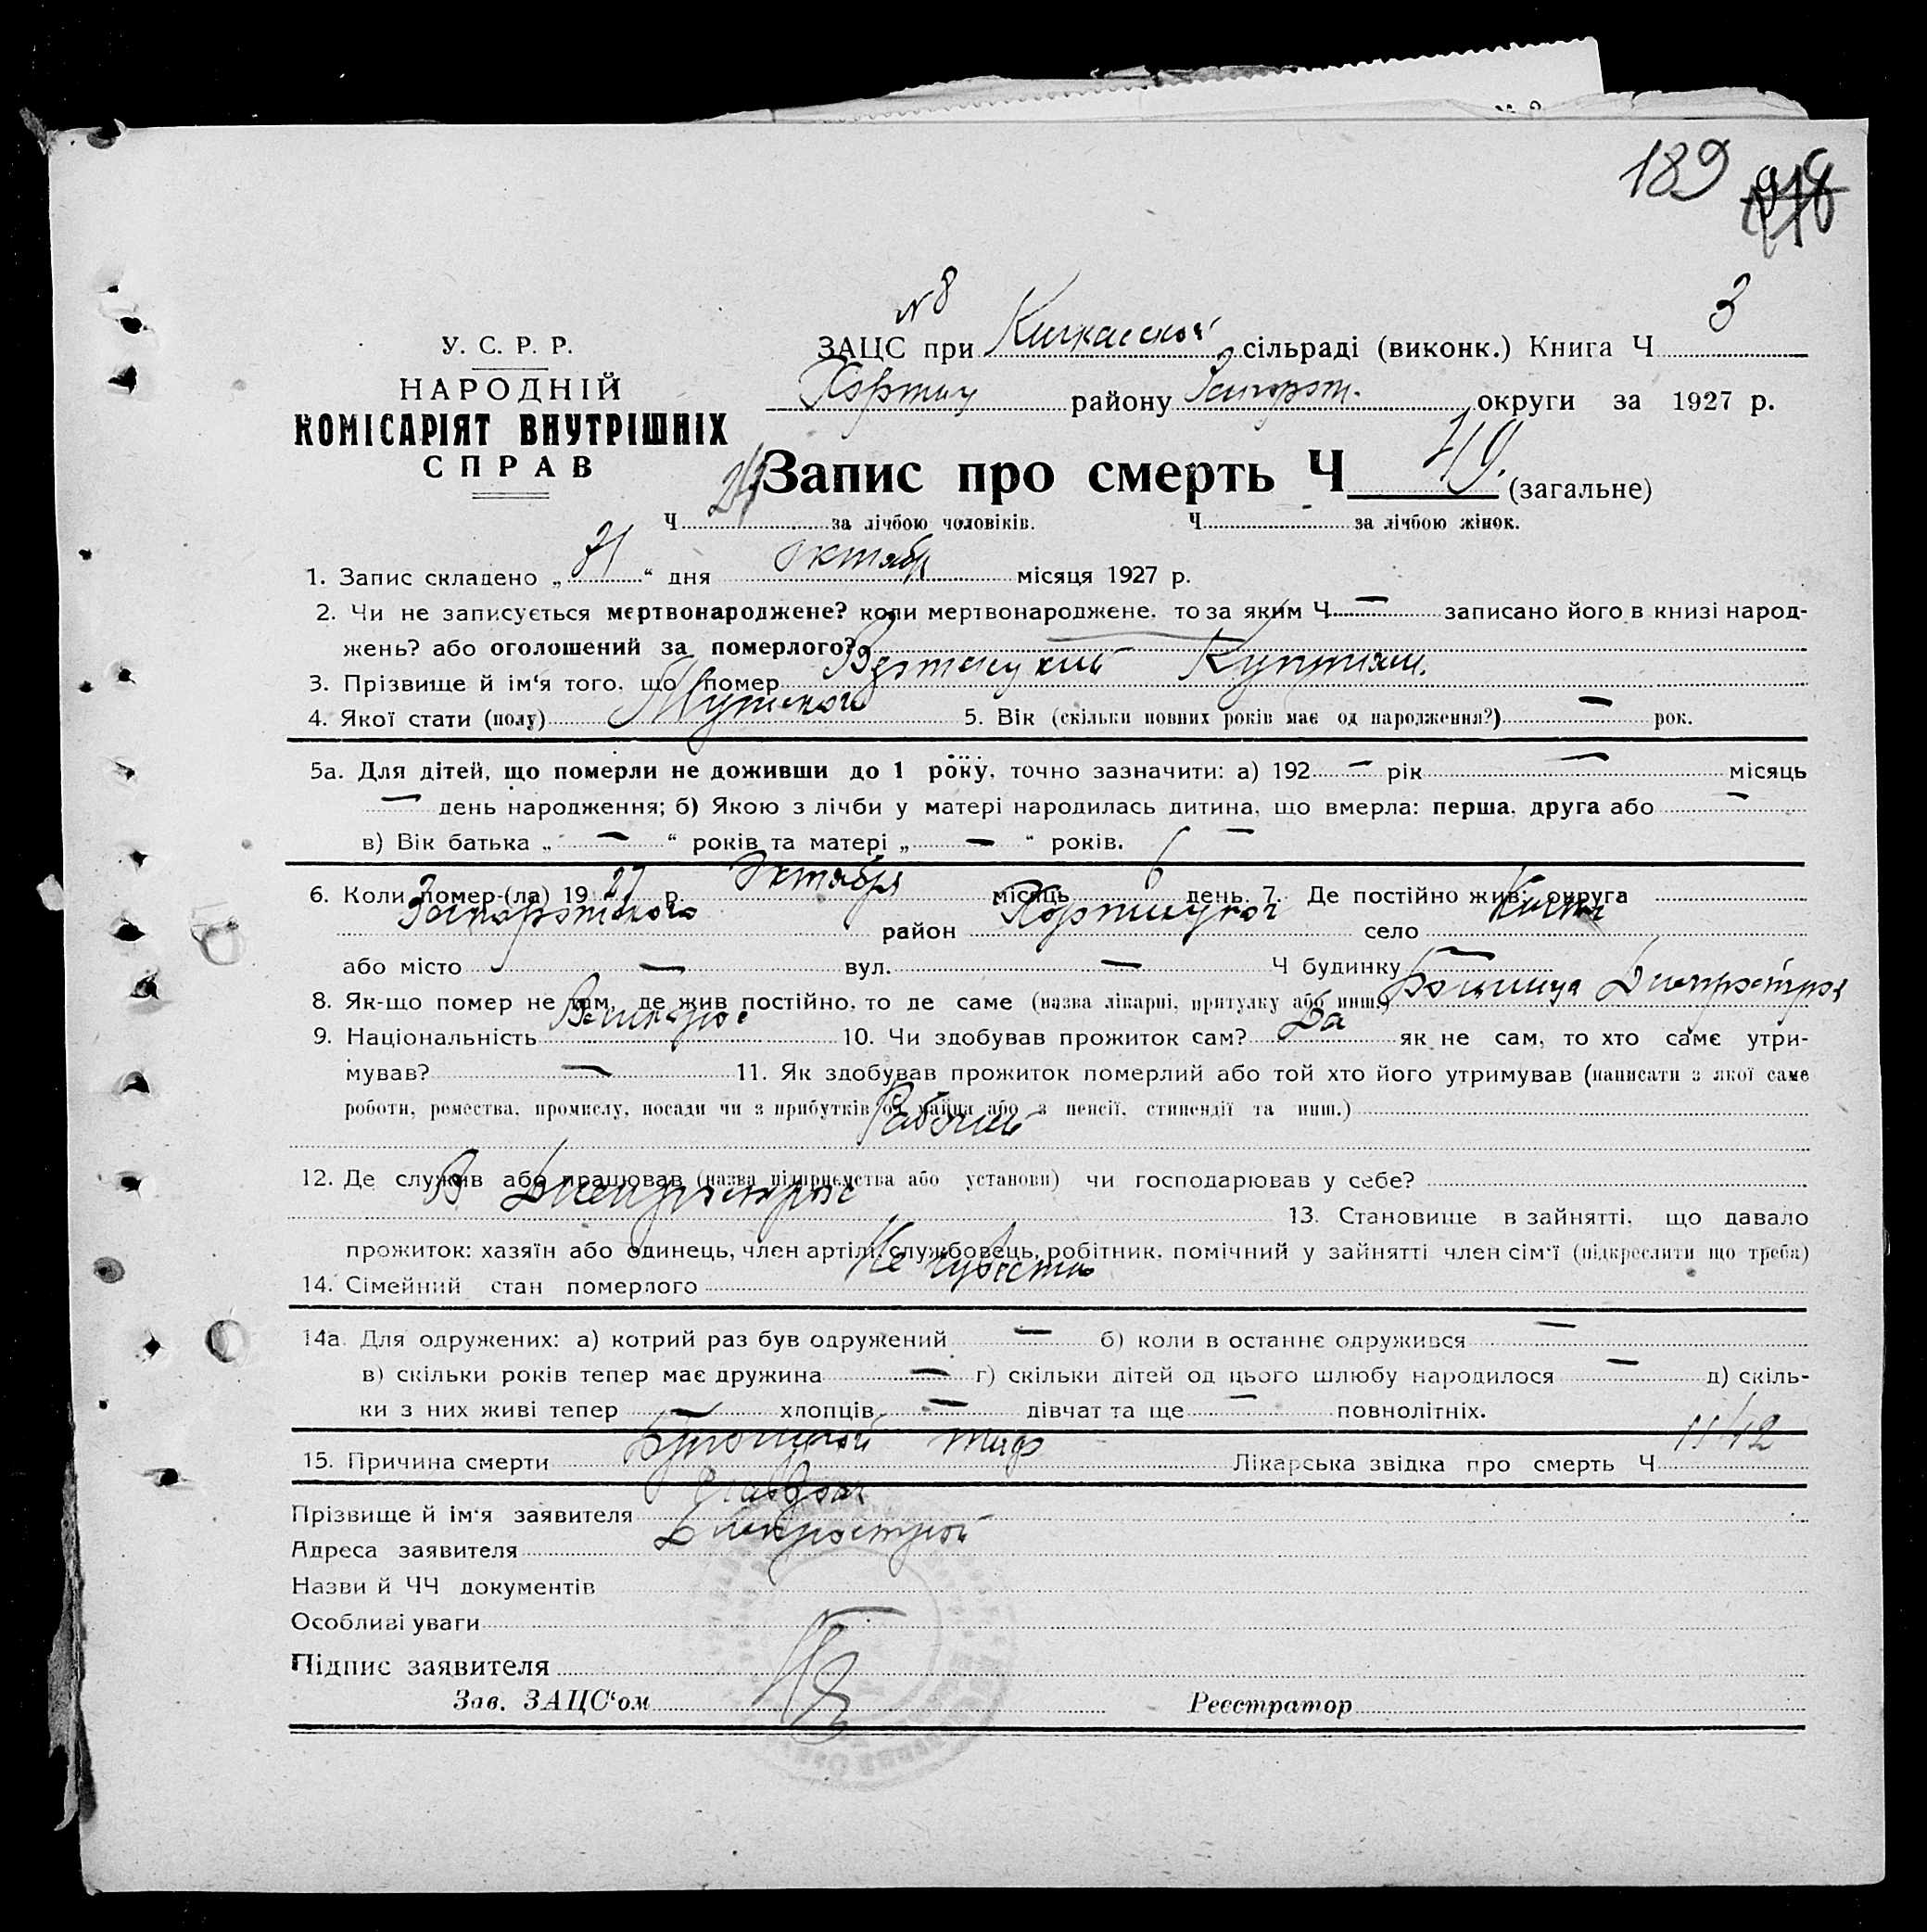 189
N 8
У. С. Р. Р.
НАРОДНІЙ
КОМІСАРІЯТ ВНУТРІШНІХ
СПРАВ
ЗАЦС при Кичкасской сільраді (виконк.) Книга Ч 3
Хортиц району Запорож. округи за 1927 р.
Запис про смерть Ч 49. (загальне)
Ч 24 за лічбою чоловіків. Ч - за лічбою жінок.
1. Запис складено „ “ дня Октябр місяця 1927 р.
2. Чи не записується мертвонароджене? коли мертвонароджене, то за яким Ч — записано його в книзі народ-
жень? або оголошений за померлого?
3. Прізвище й ім‘я того, що помер
4. Якої стати (полу) Мужского 5. Вік (скільки повних років має од народження?) — рок.
5а. Для дітей, що померли не доживши до 1 року, точно зазначити: а) 192 — рік — місяць
— день народження; б) Якою з лічби у матері народилась дитина, що вмерла: перша, друга або —
в) Вік батька „ — “ років та матері „ — “ років.
6. Коли помер-(ла) 19 27 р. Октября місяць 6 день. 7. Де постійно жив: округа
Запорожского район Хортицкой село Кичк
або місто — вул. — Ч будинку —
8. Як-що помер не там, де жив постійно, то де саме (назва лікарні, притулку або инш.) Больница Днепрострой
9. Національність Великорос 10. Чи здобував прожиток сам? Да як не сам, то хто саме утри-
мував? — 11. Як здобував прожиток померлий або той хто його утримував (написати з якої саме
роботи, ремества, промислу, посади чи з прибутків од майна або з пенсії, стипендії та инш.)
Рабочий
12. Де служив або працював (назва підприємства або установи) чи господарював у себе?
В Днепрострое 13. Становище в зайнятті, що давало
прожиток: хазяїн або одинець, член артілі, службовець, робітник, помічний у зайнятті член сім‘ї (підкреслити що треба)
14. Сімейний стан померлого Не
14а. Для одружених: а) котрий раз був одружений — б) коли в останнє одружився —
в) скільки років тепер має дружина — г) скільки дітей од цього шлюбу народилося — д) скіль-
ки з них живі тепер — хлопців — дівчат та ще — повнолітніх.
15. Причина смерти Брюшной тиф Лікарська звідка про смерть Ч 11/12
Прізвище й ім‘я заявителя Главврач
Адреса заявителя Днепрострой
Назви й ЧЧ документів
Особливі уваги
Підпис заявителя
Зав. ЗАЦС‘ом Реєстратор